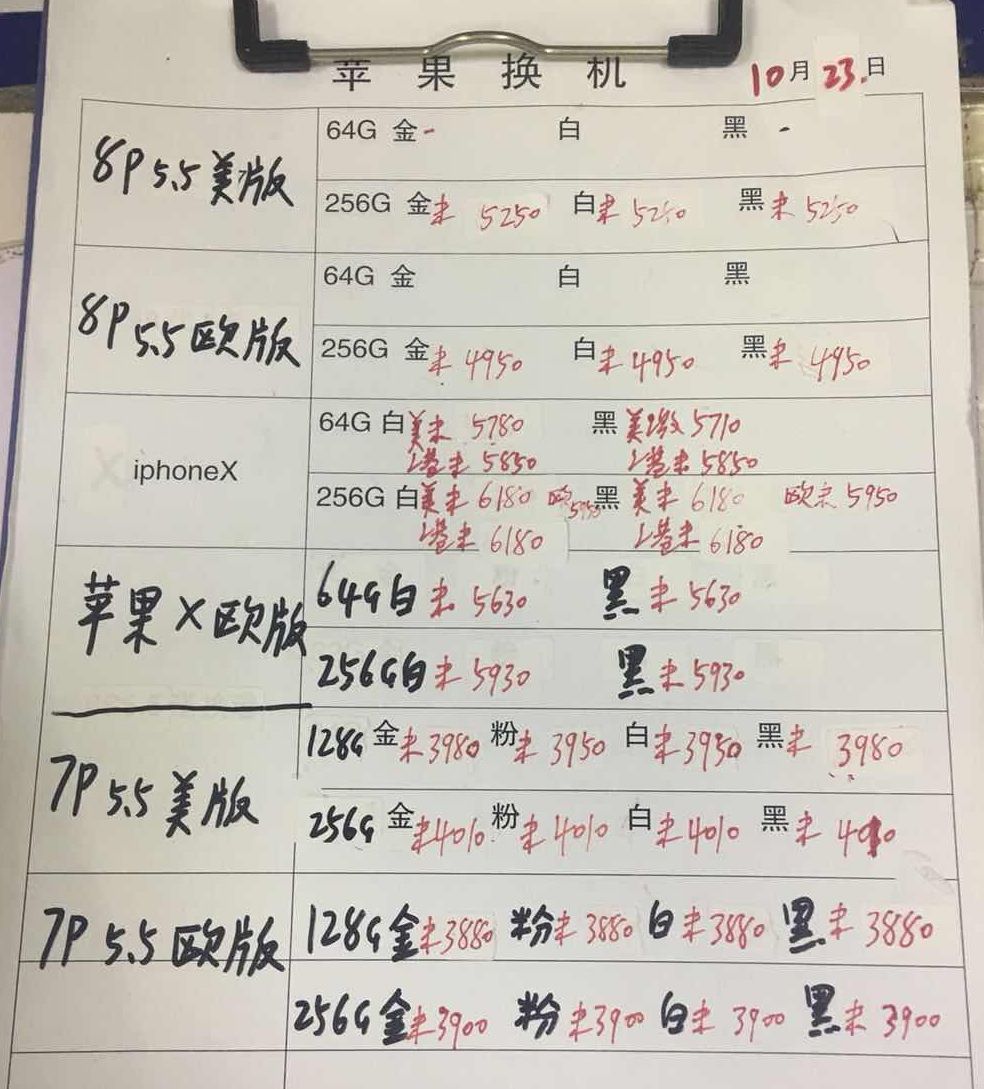 苹果换机 10月23.日
8P 5.5美版
64G 金- 白 黑 -
256G 金未 5250 白未 5250 黑未 5250
8P 5.5欧版
64G 金 白 黑
256G 金未 4950 白未 4950 黑未 4950
iphoneX
64G 白美未 5780 黑美激 5710
港未 5850 港未 5850
256G 白美未 6180 欧 5950 黑美未 6180 欧未 5950
港未 6180 港未 6180
苹果X欧版
64G白未 5630 黑未 5630
256G白未 5930 黑未 5930
7P 5.5美版
128G 金未 3980 粉未 3950 白未 3950 黑未 3980
256G 金未 4010 粉未 4010 白未 4010 黑未 4010
7P 5.5欧版
128G金未 3880 粉未 3880 白未 3880 黑未 3880
256G金未 3900 粉未 3900 白未 3900 黑未 3900